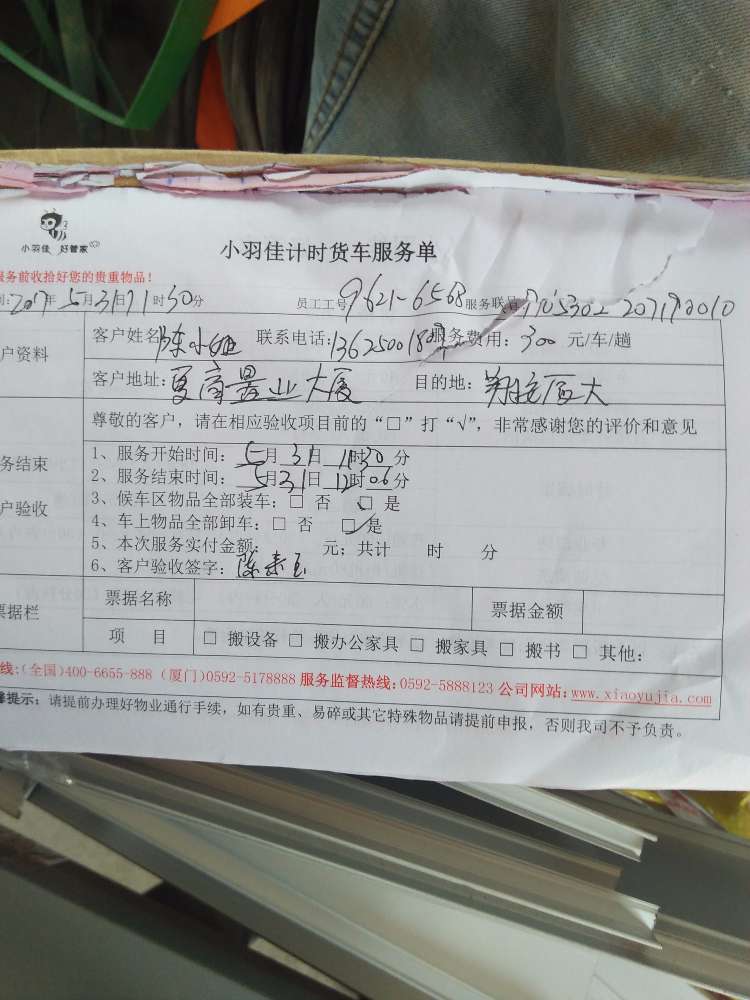 小羽佳 好管家
小羽佳计时货车服务单
服务前收拾好您的贵重物品！
2017年5月31日11时30分 员工工号 9621-6568 服务联
户资料 客户姓名 陈小姐 联系电话：服务费用：300 元/车/趟
客户地址：夏商置业大厦 目的地：翔安厦大
尊敬的客户，请在相应验收项目前的“□”打“√”，非常感谢您的评价和意见
务结束
户验收
1、服务开始时间：5月31日11时30分
2、服务结束时间：5月31日12时06分
3、候车区物品全部装车：□ 否 ☑ 是
4、车上物品全部卸车：□ 否 ☑ 是
5、本次服务实付金额： 元；共计 时 分
6、客户验收签字：陈
票据栏 票据名称 票据金额
项 目 □ 搬设备 □ 搬办公家具 □ 搬家具 □ 搬书 □ 其他：
线：(全国)400-6655-888 (厦门)0592-5178888 服务监督热线：0592-5888123 公司网站：www.xiaoyujia.com
馨提示：请提前办理好物业通行手续，如有贵重、易碎或其它特殊物品请提前申报，否则我司不予负责。